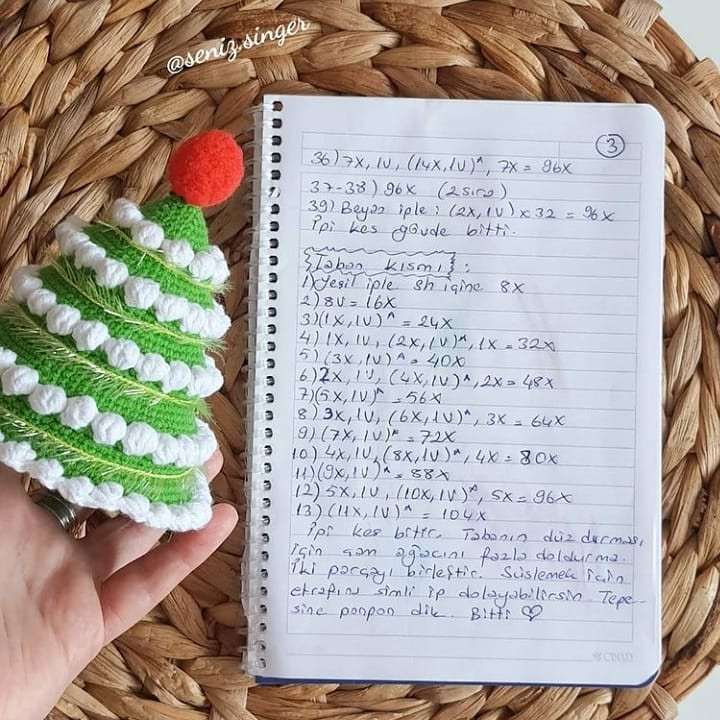 @seniz.singer
3
36) 7X, 1V, (14X, 1V)*, 7X = 96X
37-38) 96X (2 sıra)
39) Beyaz iple: (2X, 1V) x 32 = 96X
İpi kes gövde bitti.
Taban kısmı:
1) Yeşil iple sh içine 8X
2) 8V = 16X
3) (1X, 1V)* = 24X
4) 1X, 1V, (2X, 1V)*, 1X = 32X
5) (3X, 1V)* = 40X
6) 2X, 1V, (4X, 1V)*, 2X = 48X
7) (5X, 1V)* = 56X
8) 3X, 1V, (6X, 1V)*, 3X = 64X
9) (7X, 1V)* = 72X
10) 4X, 1V, (8X, 1V)*, 4X = 80X
11) (9X, 1V)* = 88X
12) 5X, 1V, (10X, 1V)*, 5X = 96X
13) (11X, 1V)* = 104X
İpi kes bitir. Tabanın düz durması
için çam ağacını fazla doldurma.
İki parçayı birleştir. Süslemek için
etrafını simli ip dolayabilirsin. Tepe-
sine ponpon dik. Bitti ♡